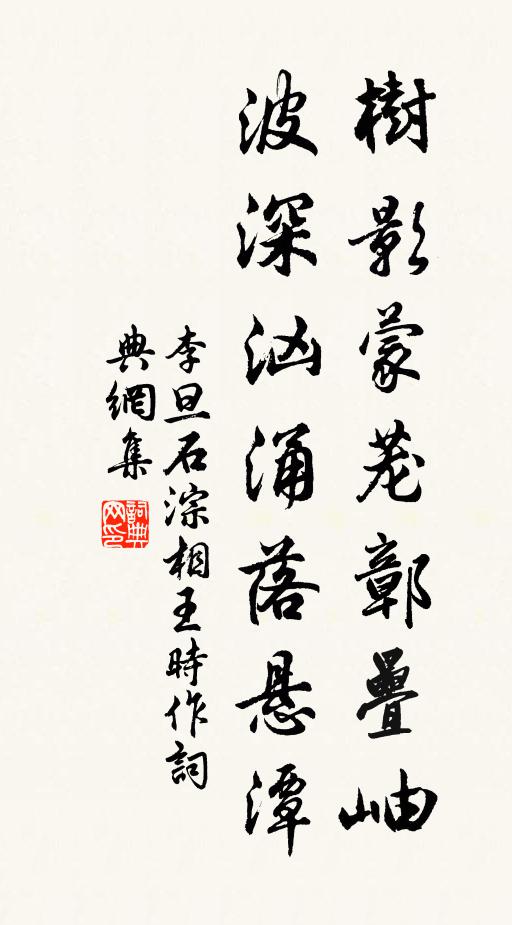 樹影蒙茏鄣疊岫
波深汹涌落悬潭
李旦石淙相王時作詞
典網集
詞典網印